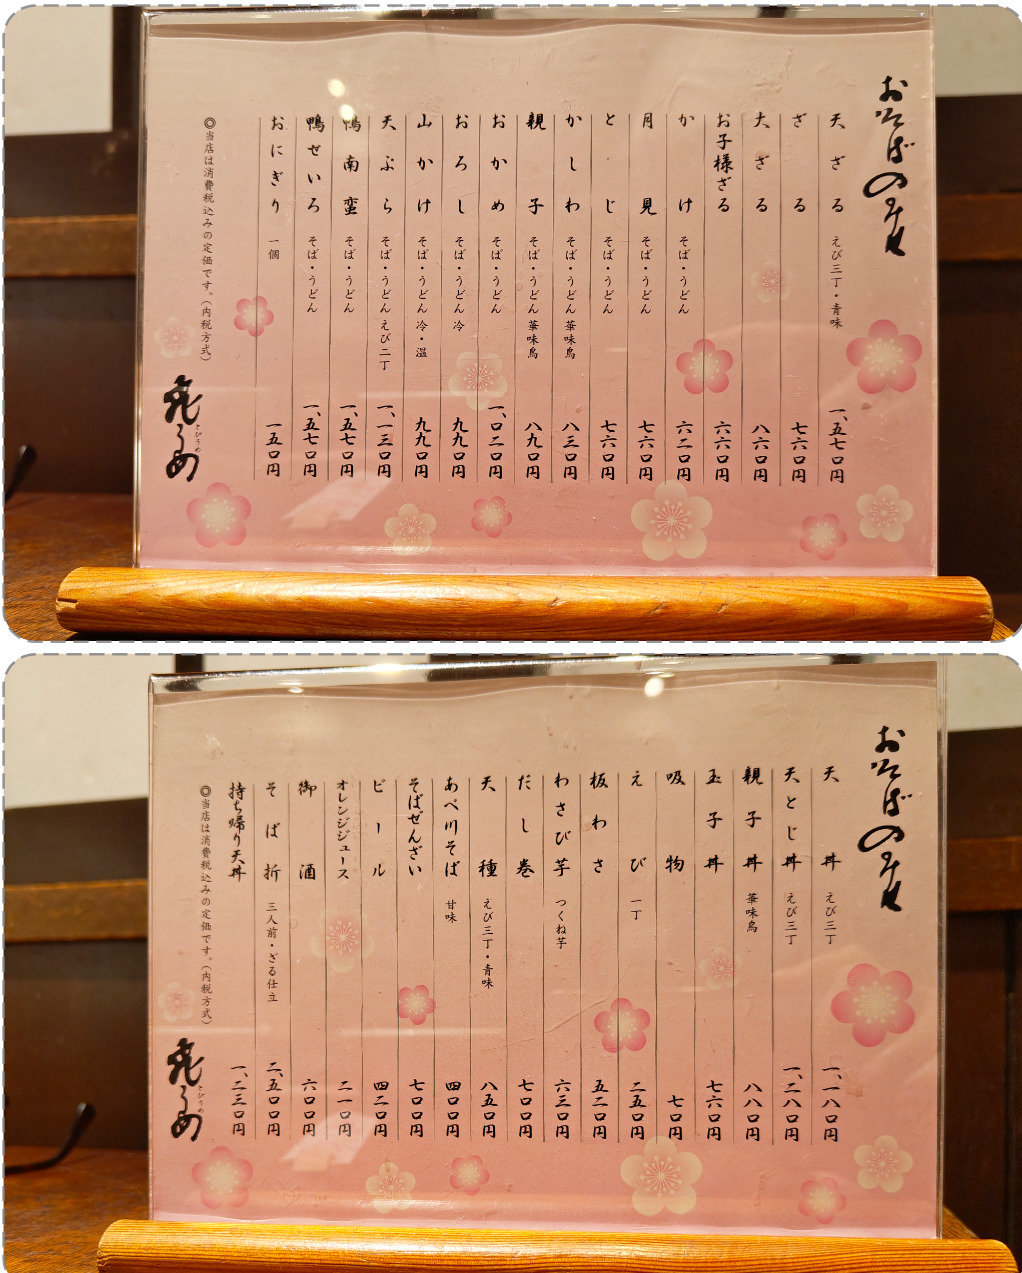 おそばのみせ
天ざる えび三丁・青味 一、五七〇円
ざる 七六〇円
大ざる 八六〇円
お子様ざる 六六〇円
かけ そば・うどん 六二〇円
月見 そば・うどん 七六〇円
とじ そば・うどん 七六〇円
かしわ そば・うどん 華味鳥 八三〇円
親子 そば・うどん 華味鳥 八九〇円
おかめ そば・うどん 一、〇二〇円
おろし そば・うどん 冷 九九〇円
山かけ そば・うどん 冷・温 九九〇円
天ぷら そば・うどん えび二丁 一、一三〇円
鴨南蛮 そば・うどん 一、五七〇円
鴨せいろ そば・うどん 一、五七〇円
おにぎり 一個 一五〇円
◎当店は消費税込みの定価です。(内税方式)
飛うめ
とびうめ
おそばのみせ
天丼 えび三丁 一、一八〇円
天とじ丼 えび三丁 一、二八〇円
親子丼 華味鳥 八八〇円
玉子丼 七六〇円
吸物 七〇円
えび 一丁 二五〇円
板わさ 五二〇円
わさび芋 つくね芋 六三〇円
だし巻 七〇〇円
天種 えび三丁・青味 八五〇円
あべ川そば 甘味 四〇〇円
そばぜんざい 七〇〇円
ビール 四二〇円
オレンジジュース 二一〇円
御酒 六〇〇円
そば折 三人前・ざる仕立 二、五〇〇円
持ち帰り天丼 一、二三〇円
◎当店は消費税込みの定価です。(内税方式)
飛うめ
とびうめ